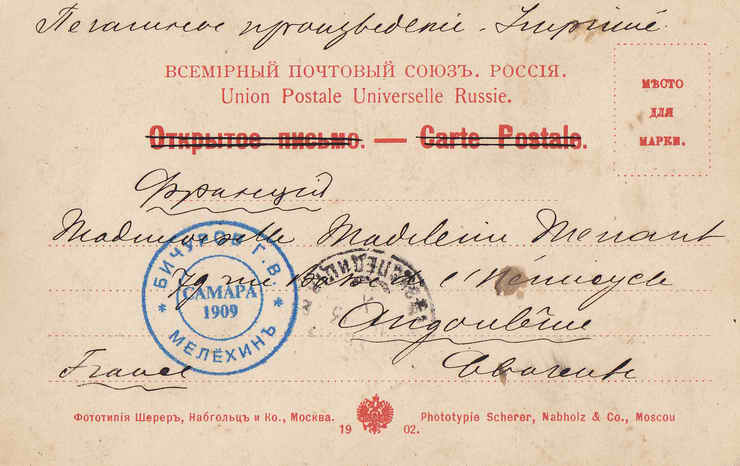 Печатное произведеніе. Imprimé
ВСЕМІРНЫЙ ПОЧТОВЫЙ СОЮЗЪ. РОССІЯ.
Union Postale Universelle Russie.
МѢСТО
ДЛЯ
МАРКИ.
Открытое письмо. — Carte Postale.
Франція
Mademoiselle Madeleine Menant
79 rue de l'Hémicycle
Angoulême
France
Charente
БИЧУРОВ Г.В.
САМАРА
1909
МЕЛЁХИНЪ
Фототипія Шереръ, Набгольцъ и Ко., Москва.
1902.
Phototypie Scherer, Nabholz & Co., Moscou